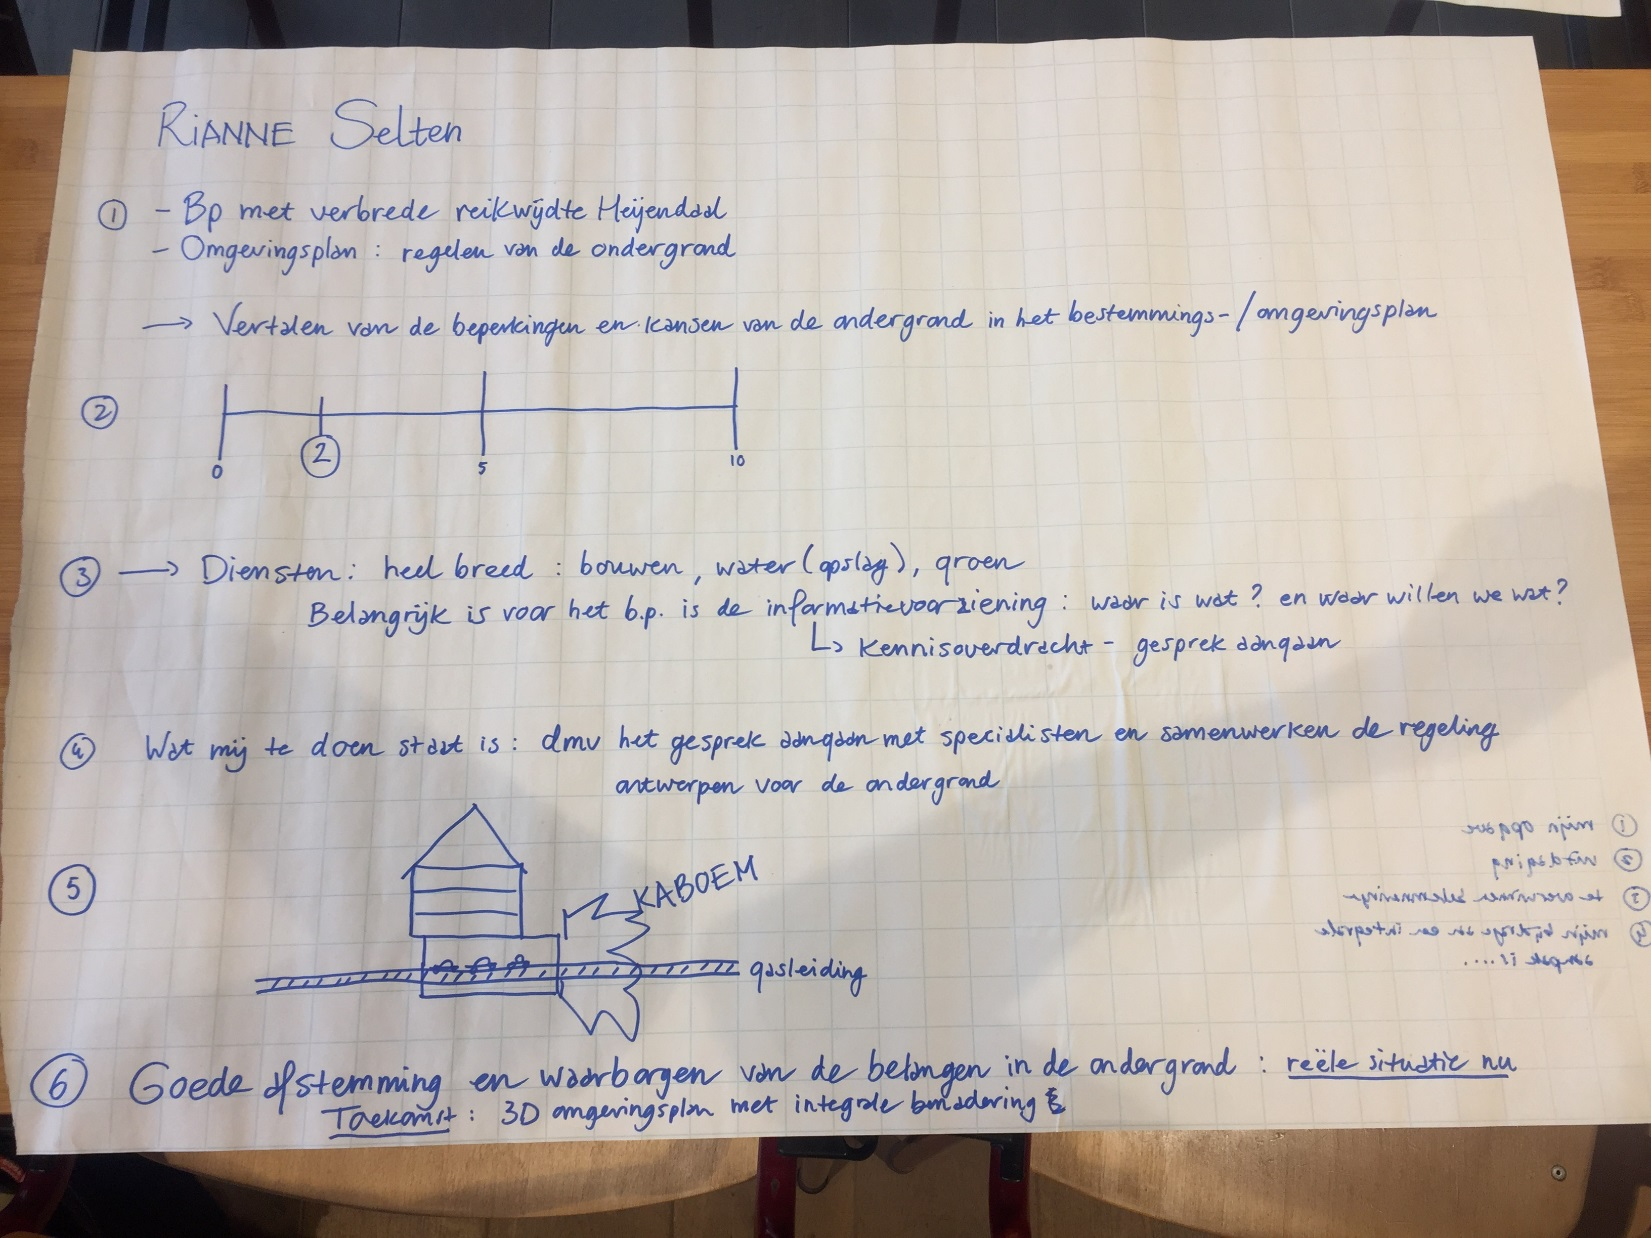 RiANNE Selten
① - Bp met verbrede reikwijdte Heijendaal
- Omgevingsplan : regelen van de ondergrond
→ Vertalen van de beperkingen en kansen van de ondergrond in het bestemmings-/omgevingsplan
②
0 2 5 10
③ → Diensten: heel breed : bouwen, water (opslag), groen
Belangrijk is voor het b.p. is de informatievoorziening : waar is wat? en waar willen we wat?
↳ kennisoverdracht - gesprek aangaan
④ Wat mij te doen staat is : dmv het gesprek aangaan met specialisten en samenwerken de regeling
ontwerpen voor de ondergrond
⑤
KABOEM
gasleiding
⑥ Goede afstemming en waarborgen van de belangen in de ondergrond : reële situatie nu
Toekomst : 3D omgevingsplan met integrale benadering
① mijn opgave
② uitdaging
③ te overwinnen belemmering
④ mijn bijdrage aan een integrale
aanpak is ....